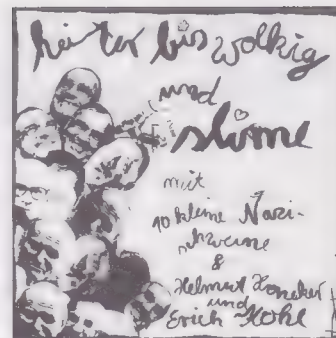 heiter bis wolkig
und
slime
mit
10 kleine Nazi-
schweine
&
Helmut Honeker
und
Erich Kohl